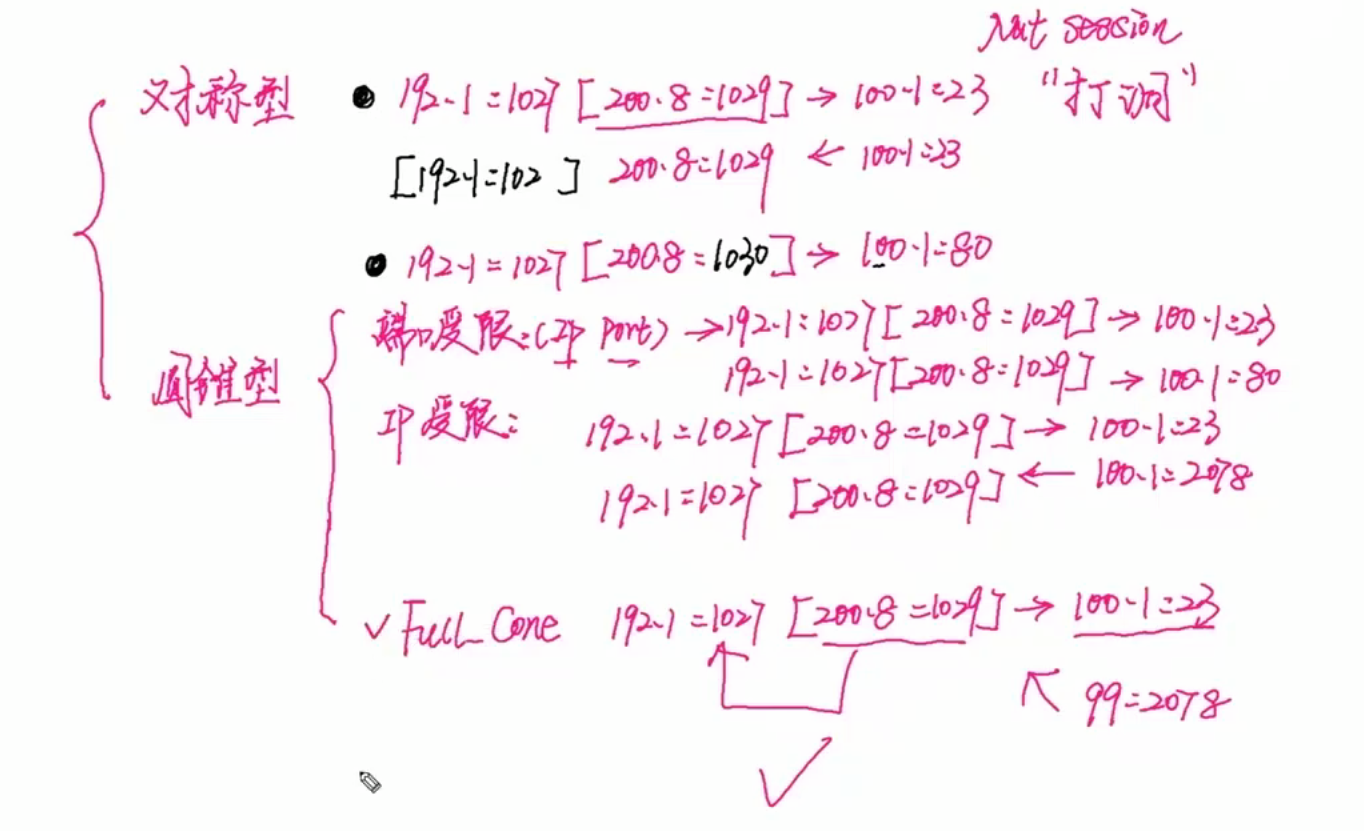 Nat session
对称型 ● 192.1:1027 [200.8:1029] → 100.1:23 “打洞”
[192.1:102 ] 200.8:1029 ← 100.1:23
● 192.1:1027 [200.8:1030] → 100.1:80
端口受限:(IP Port) → 192.1:1027 [200.8:1029] → 100.1:23
192.1:1027 [200.8:1029] → 100.1:80
圆锥型
IP受限: 192.1:1027 [200.8:1029] → 100.1:23
192.1:1027 [200.8:1029] ← 100.1:2078
✓ Full Cone 192.1:1027 [200.8:1029] → 100.1:23
99:2078